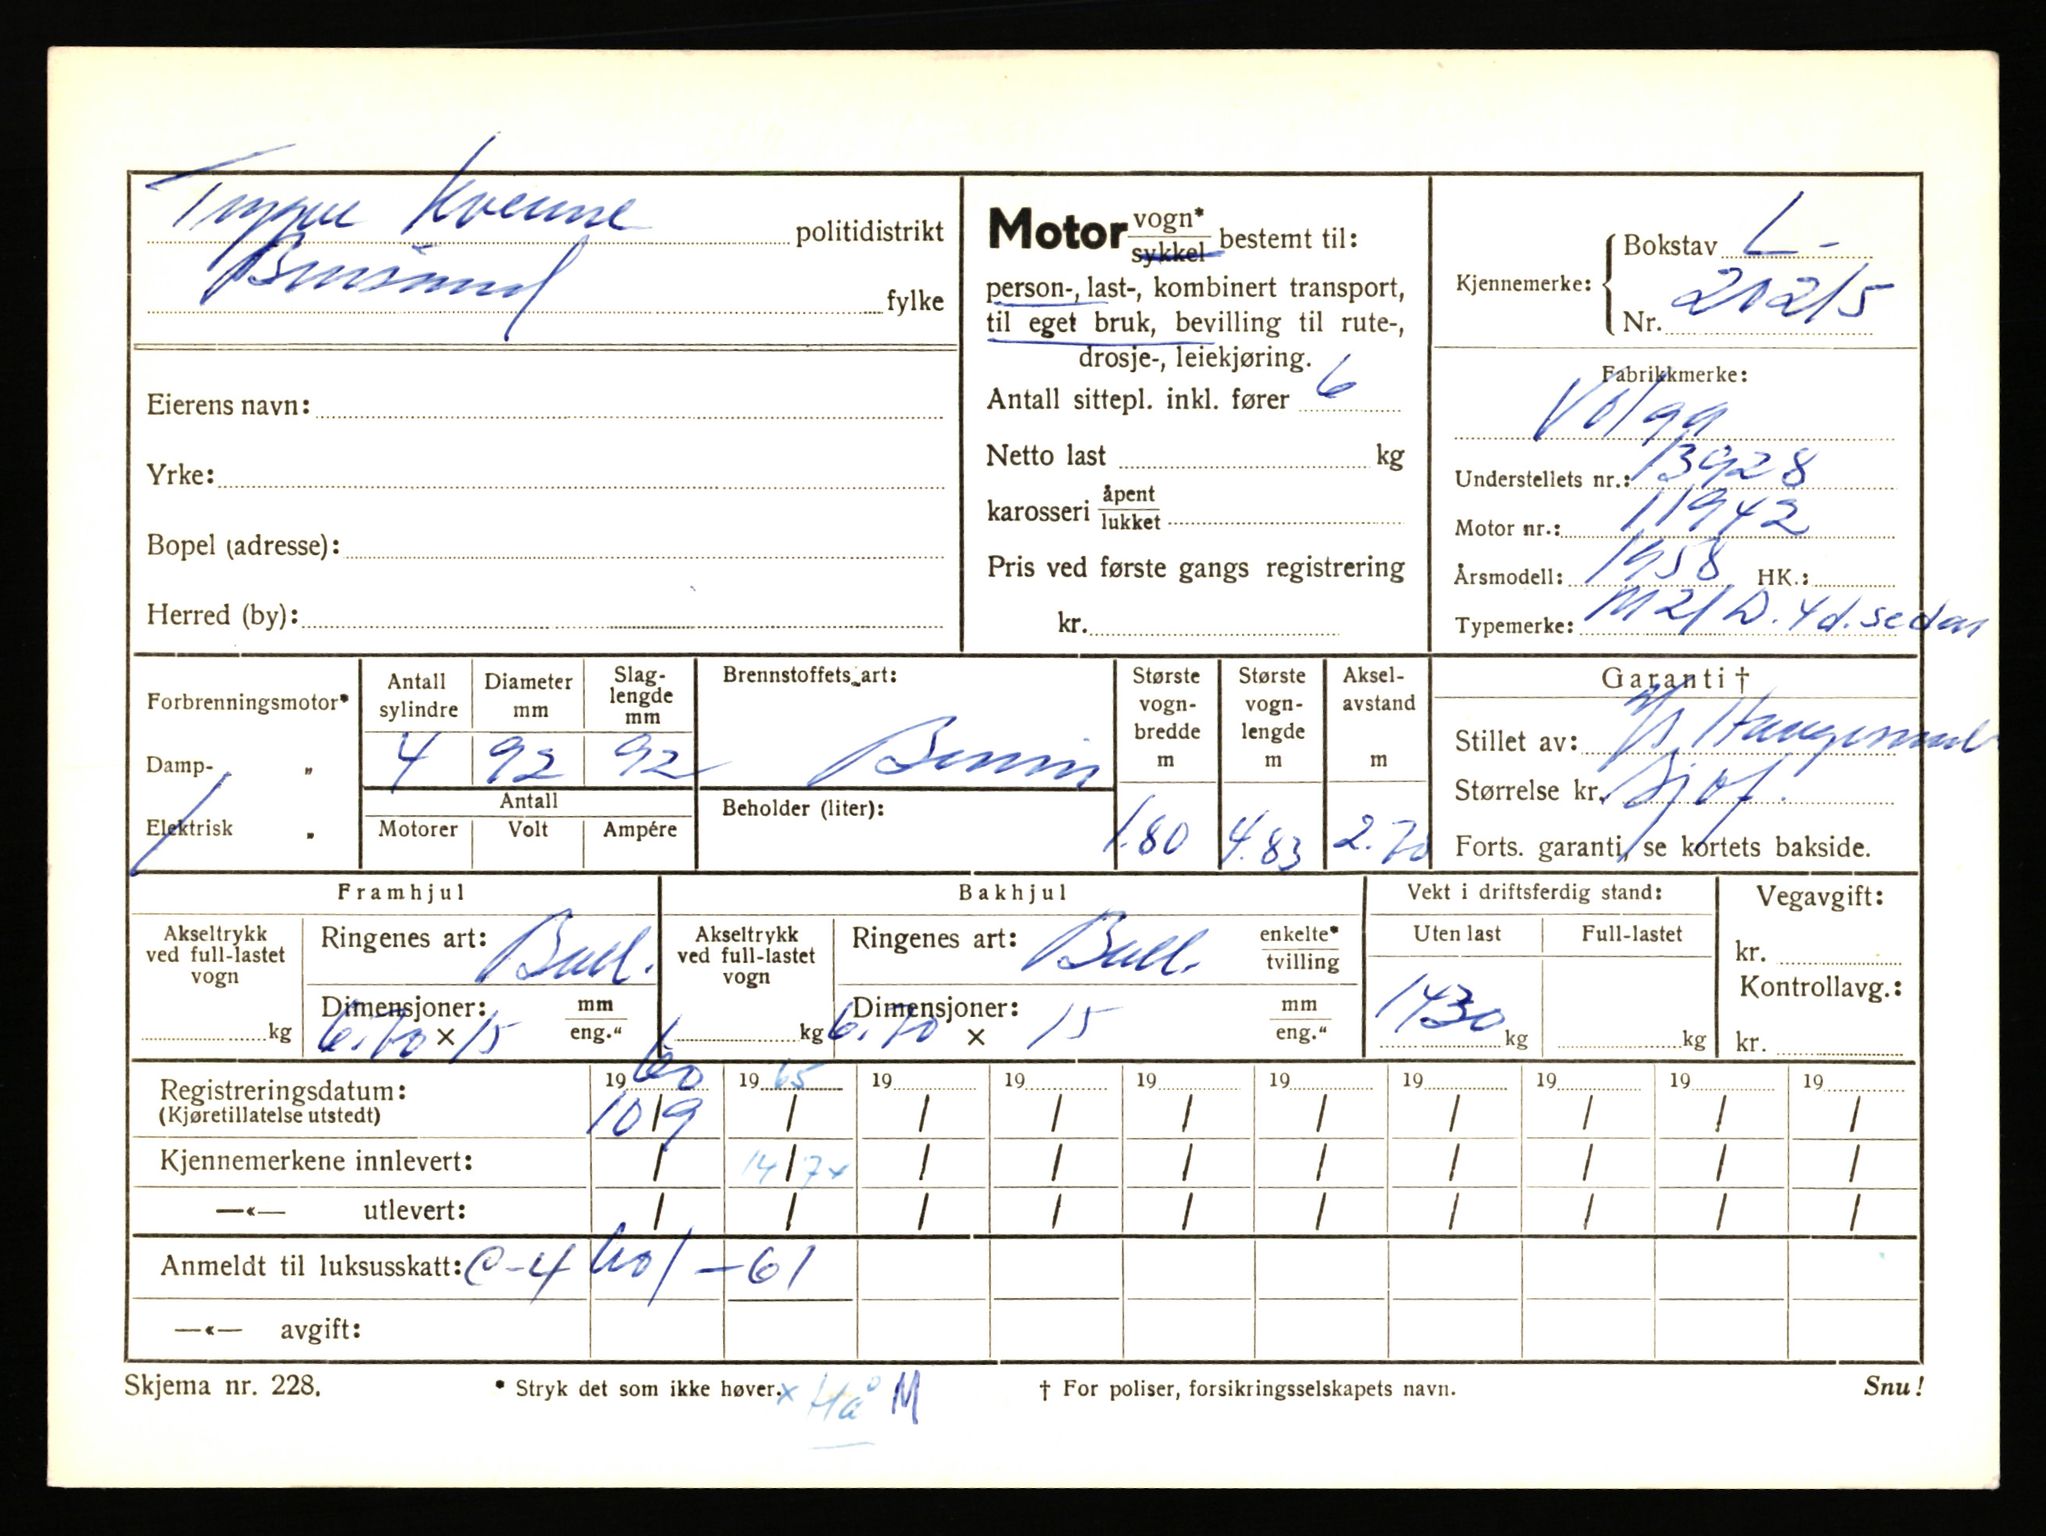 Kvenne politidistrikt
fylke
Eierens navn:
Yrke:
Bopel (adresse):
Herred (by):
Motor vogn* / sykkel bestemt til:
person-, last-, kombinert transport,
til eget bruk, bevilling til rute-,
drosje-, leiekjøring.
Antall sittepl. inkl. fører 6
Netto last kg
karosseri åpent / lukket
Pris ved første gangs registrering
kr.
Kjennemerke: Bokstav L-
Nr. 20215
Fabrikkmerke:
Volga
Understellets nr.: 13928
Motor nr.: 11942
Årsmodell: 1958 HK.:
Typemerke: M21 D. 4d. sedan
Forbrenningsmotor*
Damp- „
Elektrisk „
Antall sylindre 4
Diameter mm 92
Slag-lengde mm 92
Antall
Motorer Volt Ampére
Brennstoffets art:
Bensin
Beholder (liter):
Største vogn-bredde m 1.80
Største vogn-lengde m 4.83
Aksel-avstand m 2.70
Garanti †
Stillet av:
Størrelse kr.
Forts. garanti, se kortets bakside.
Framhjul
Akseltrykk ved full-lastet vogn kg
Ringenes art: Ball.
Dimensjoner: mm / eng."
6.70 × 15
Bakhjul
Akseltrykk ved full-lastet vogn kg
Ringenes art: Ball. enkelte* / tvilling
Dimensjoner: mm / eng."
6.70 × 15
Vekt i driftsferdig stand:
Uten last Full-lastet
1430 kg kg
Vegavgift:
kr.
Kontrollavg.:
kr.
Registreringsdatum: 1960 1965 19 19 19 19 19 19 19 19
(Kjøretillatelse utstedt) 10/9 / / / / / / / / /
Kjennemerkene innlevert: / 14/7x / / / / / / / /
—«— utlevert: / / / / / / / / / /
Anmeldt til luksusskatt: C-4 60/-61
—«— avgift:
Skjema nr. 228. * Stryk det som ikke høver. x Hå M † For poliser, forsikringsselskapets navn. Snu!